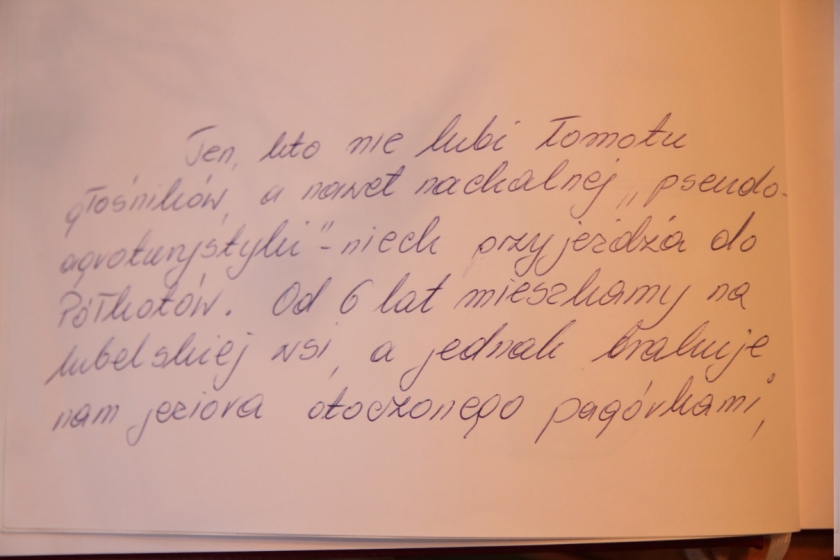 Ten, kto nie lubi łomotu
głośników, a nawet nachalnej „pseudo-
agroturystyki" - niech przyjeżdża do
Półkotów. Od 6 lat mieszkamy na
lubelskiej wsi, a jednak brakuje
nam jeziora otoczonego pagórkami,